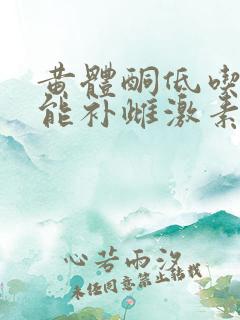 黄體酮低喫
能补雌激素
心若雨汐
未经同意禁止转载